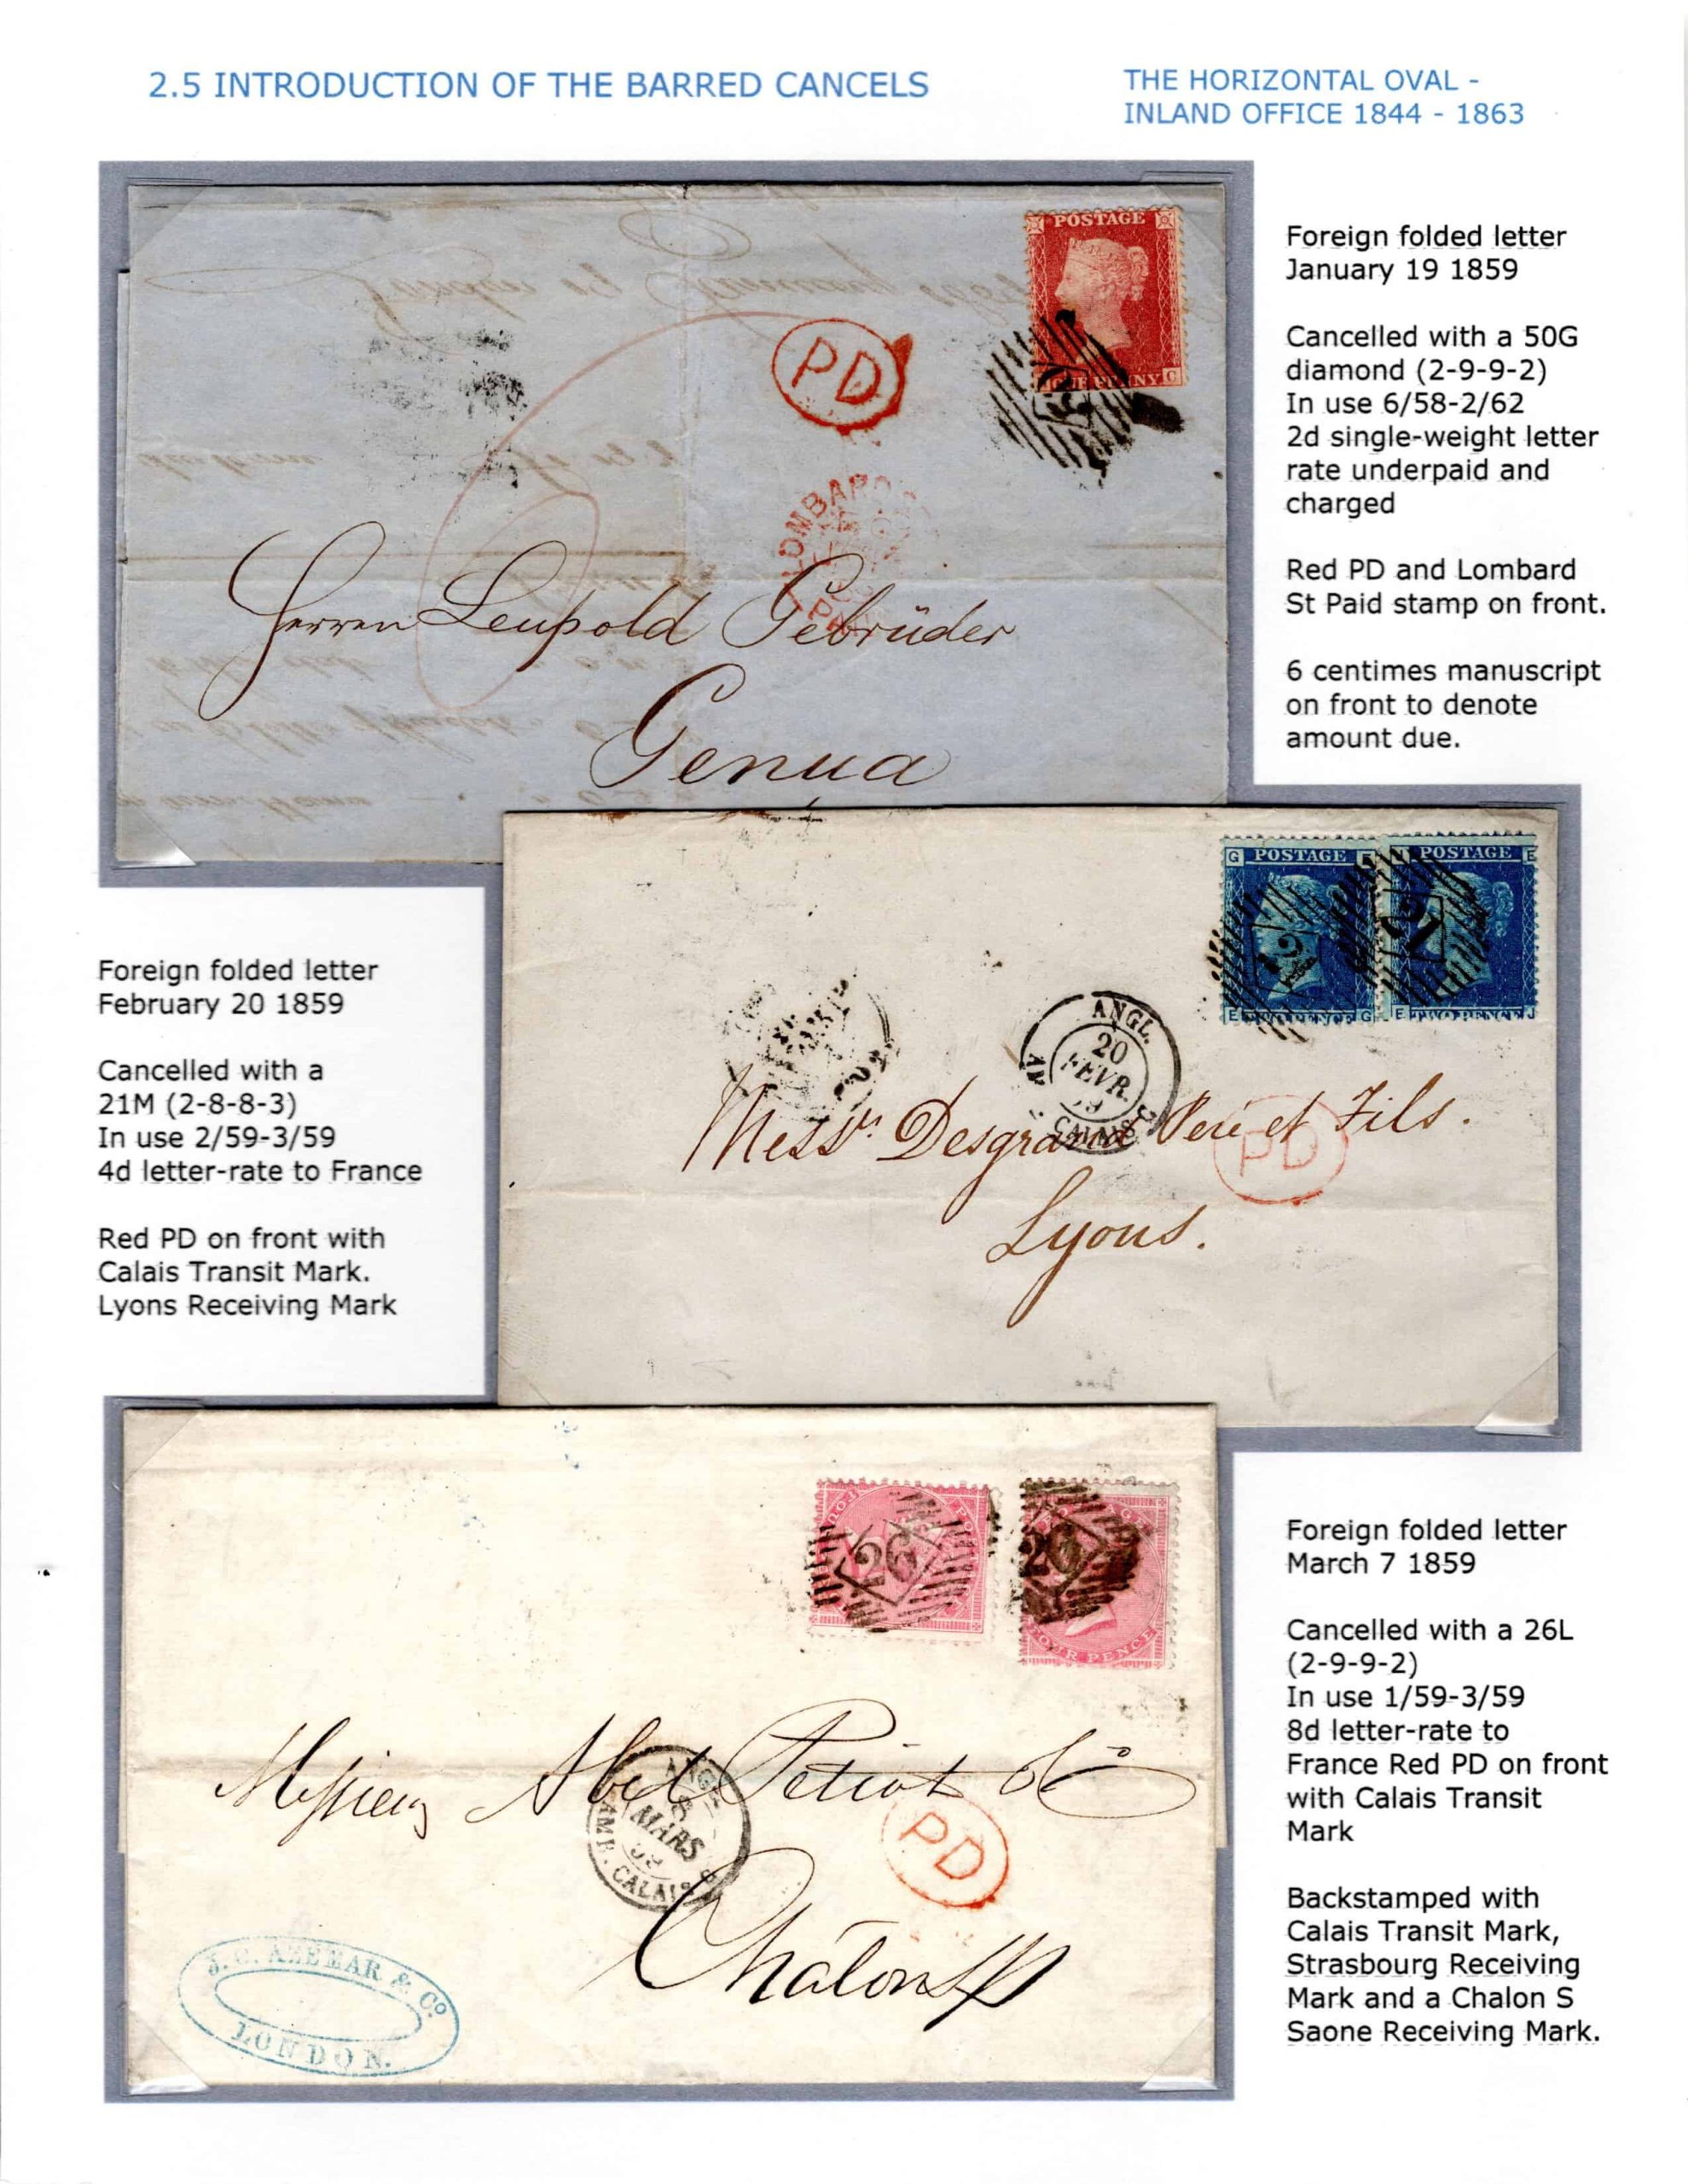 2.5 INTRODUCTION OF THE BARRED CANCELS
THE HORIZONTAL OVAL -
INLAND OFFICE 1844 - 1863
POSTAGE
PENNY C
PD
LOMBARD
Herren Leupold Gebrüder
Genua
Foreign folded letter
January 19 1859
Cancelled with a 50G
diamond (2-9-9-2)
In use 6/58-2/62
2d single-weight letter
rate underpaid and
charged
Red PD and Lombard
St Paid stamp on front.
6 centimes manuscript
on front to denote
amount due.
G POSTAGE
POSTAGE E
E G
E
21
21
ANGL.
20
FEVR.
59
CALAIS
PD
Messrs. Desgrand Père et Fils.
Lyons.
Foreign folded letter
February 20 1859
Cancelled with a
21M (2-8-8-3)
In use 2/59-3/59
4d letter-rate to France
Red PD on front with
Calais Transit Mark.
Lyons Receiving Mark
26
26
FOUR PENCE
Messieurs Abel Petiot & Co
ANGL.
8
MARS
59
AMB. CALAIS
PD
Châlon s/S
J. C. AZEEAR & Co
LONDON.
Foreign folded letter
March 7 1859
Cancelled with a 26L
(2-9-9-2)
In use 1/59-3/59
8d letter-rate to
France Red PD on front
with Calais Transit
Mark
Backstamped with
Calais Transit Mark,
Strasbourg Receiving
Mark and a Chalon S
Saone Receiving Mark.